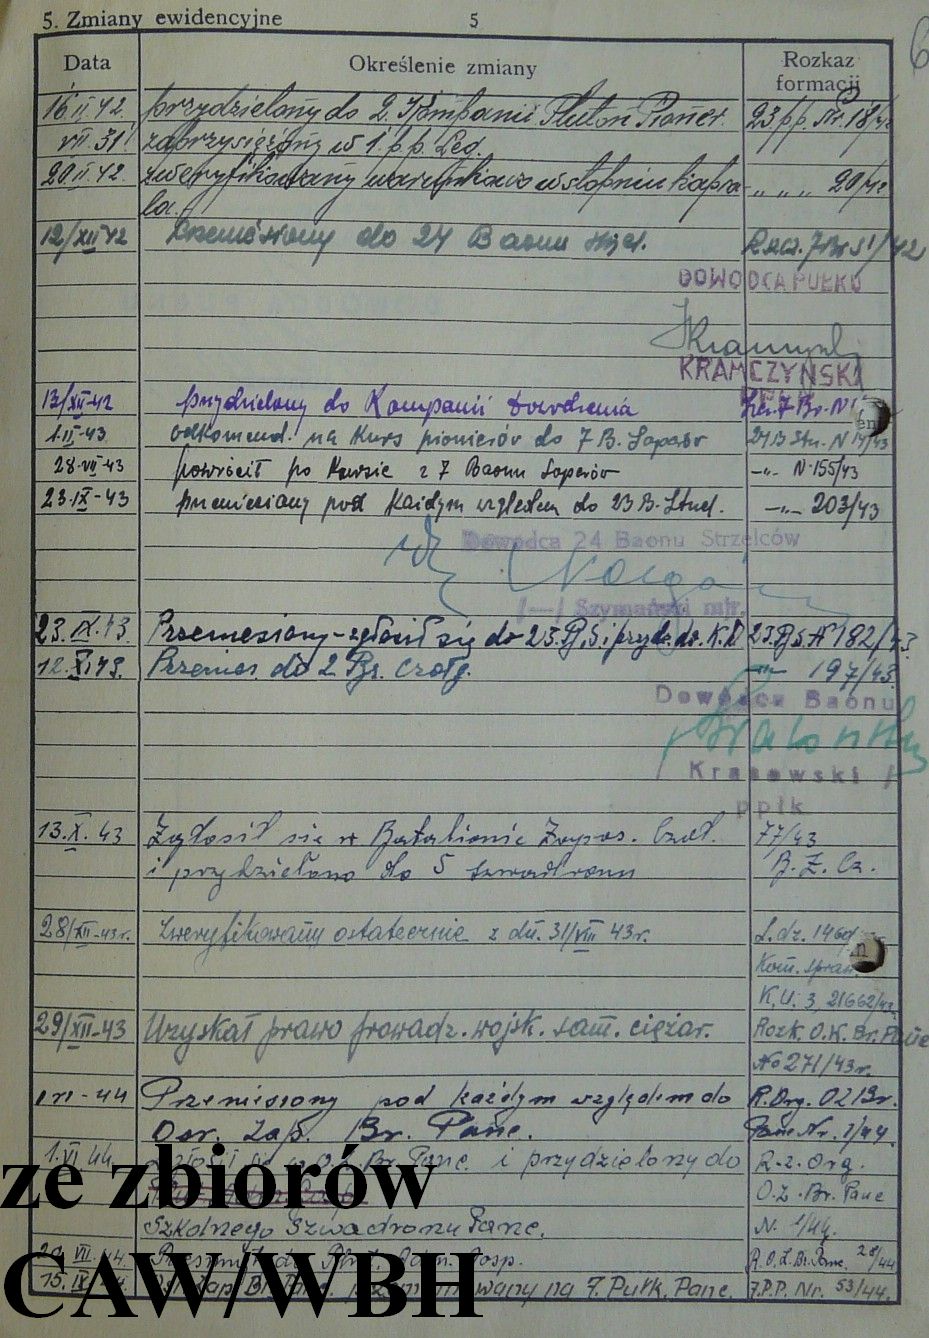 5. Zmiany ewidencyjne 5 6
Data Określenie zmiany Rozkaz formacji
16.II.42. przydzielony do 2. Kompanii Pluton Pionier. 23 pp. Nr. 18/42
VII. 31 zaprzysiężony w 1. p.p. Leg.
20.II.42. zweryfikowany warunkowo w stopniu kapra- „ „ „ 20/42
la.
12/XII 42 Przeniesiony do 24 Baonu Rozk. 7 Br 51/42
DOWODCA PUŁKU
KRAMCZYŃSKI
13/XII-42 przydzielony do Kompanii Dowodzenia 7 Br. N
1.II-43 odkomend. na kurs pionierów do 7 B. Saperów 24 B Str. N 14/43
28-VII-43 powrócił po Kursie z 7 Baonu Saperów —„— N 155/43
23.IX-43 przeniesiony pod każdym względem do 23 B. Strzel. —„— 203/43
Dowodca 24 Baonu Strzelców
/—/ Szymański mjr.
23.IX.43. Przeniesiony-zgłosił się do 23.B.S i przydz. do K.D 23.B.S. N 182/43.
12.X.43. Przenies. do 2 Br. Czołg. —„— 197/43.
Dowódca Baonu
Krasowski /
ppłk
13.X.43 Zgłosił się w Batalionie Zapas. Czoł. 77/43
i przydzielono do 5 szwadronu B. Z. Cz.
28/XII-43r. Zweryfikowany ostatecznie z dn. 31/VIII 43r. L.dz. 1460/
Kom. spraw.
K.U. 3, 21662/43
29/XII-43 Uzyskał prawo prowadz. wojsk. sam. ciężar. Rozk. O.K. Br. Panc
No 271/43r.
1 VI-44 Przeniesiony pod każdym względem do R. Org. O.Z Br.
Osr. Zap. Br. Panc. Panc Nr. 1/44.
1.VI 44 Zgłosił się w O.Z. Br. Panc. i przydzielony do R. z. Org.
O.Z. Br. Panc
Szkolnego Szwadronu Panc. N. 1/44.
VII. 44. Przesunięty do Plut. Adm. Gosp. R.O.Z. Br. Panc. 28/44
15. IX Zap. Br. Panc. na 7. Pułk. Panc. 7.P.P. Nr. 53/44.
ze zbiorów
CAW/WBH